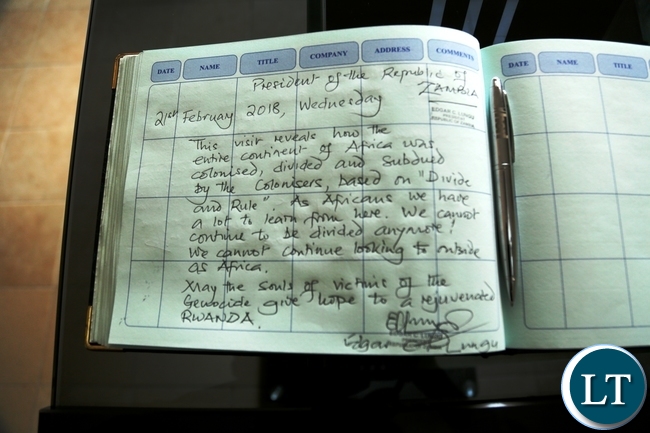 DATE NAME TITLE COMPANY ADDRESS COMMENTS
President of the Republic of
ZAMBIA
21st February 2018, Wednesday
EDGAR C. LUNGU
PRESIDENT
REPUBLIC OF ZAMBIA
This visit reveals how the
entire continent of Africa was
colonised, divided and subdued
by the Colonisers, based on "Divide
and Rule". As Africans we have
a lot to learn from here. We cannot
continue to be divided anymore!
We cannot continue looking to outside
as Africa.
May the souls of victims of the
Genocide give hope to a rejuvenated
RWANDA.
Edgar C. Lungu
DATE NAME TITLE
LT